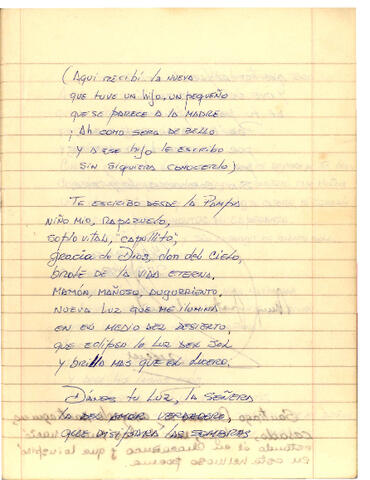 (Aquí recibí la nueva
que tuve un hijo, un pequeño
que se parece a la madre
¡Ah como sera de bello
y a ese hijo le escribo
sin siquiera conocerlo)
Te escribo desde la Pampa
niño mio, rapazuelo,
soplo vital, "capullito",
gracia de Dios, don del Cielo,
brote de la vida eterna,
mamón, mañoso,
nueva luz que me ilumina
en el medio del desierto,
que eclipsa la luz del sol
y brilla mas que el lucero.
Danos tu luz, la señera
la del amor verdadero,
que disipará las sombras